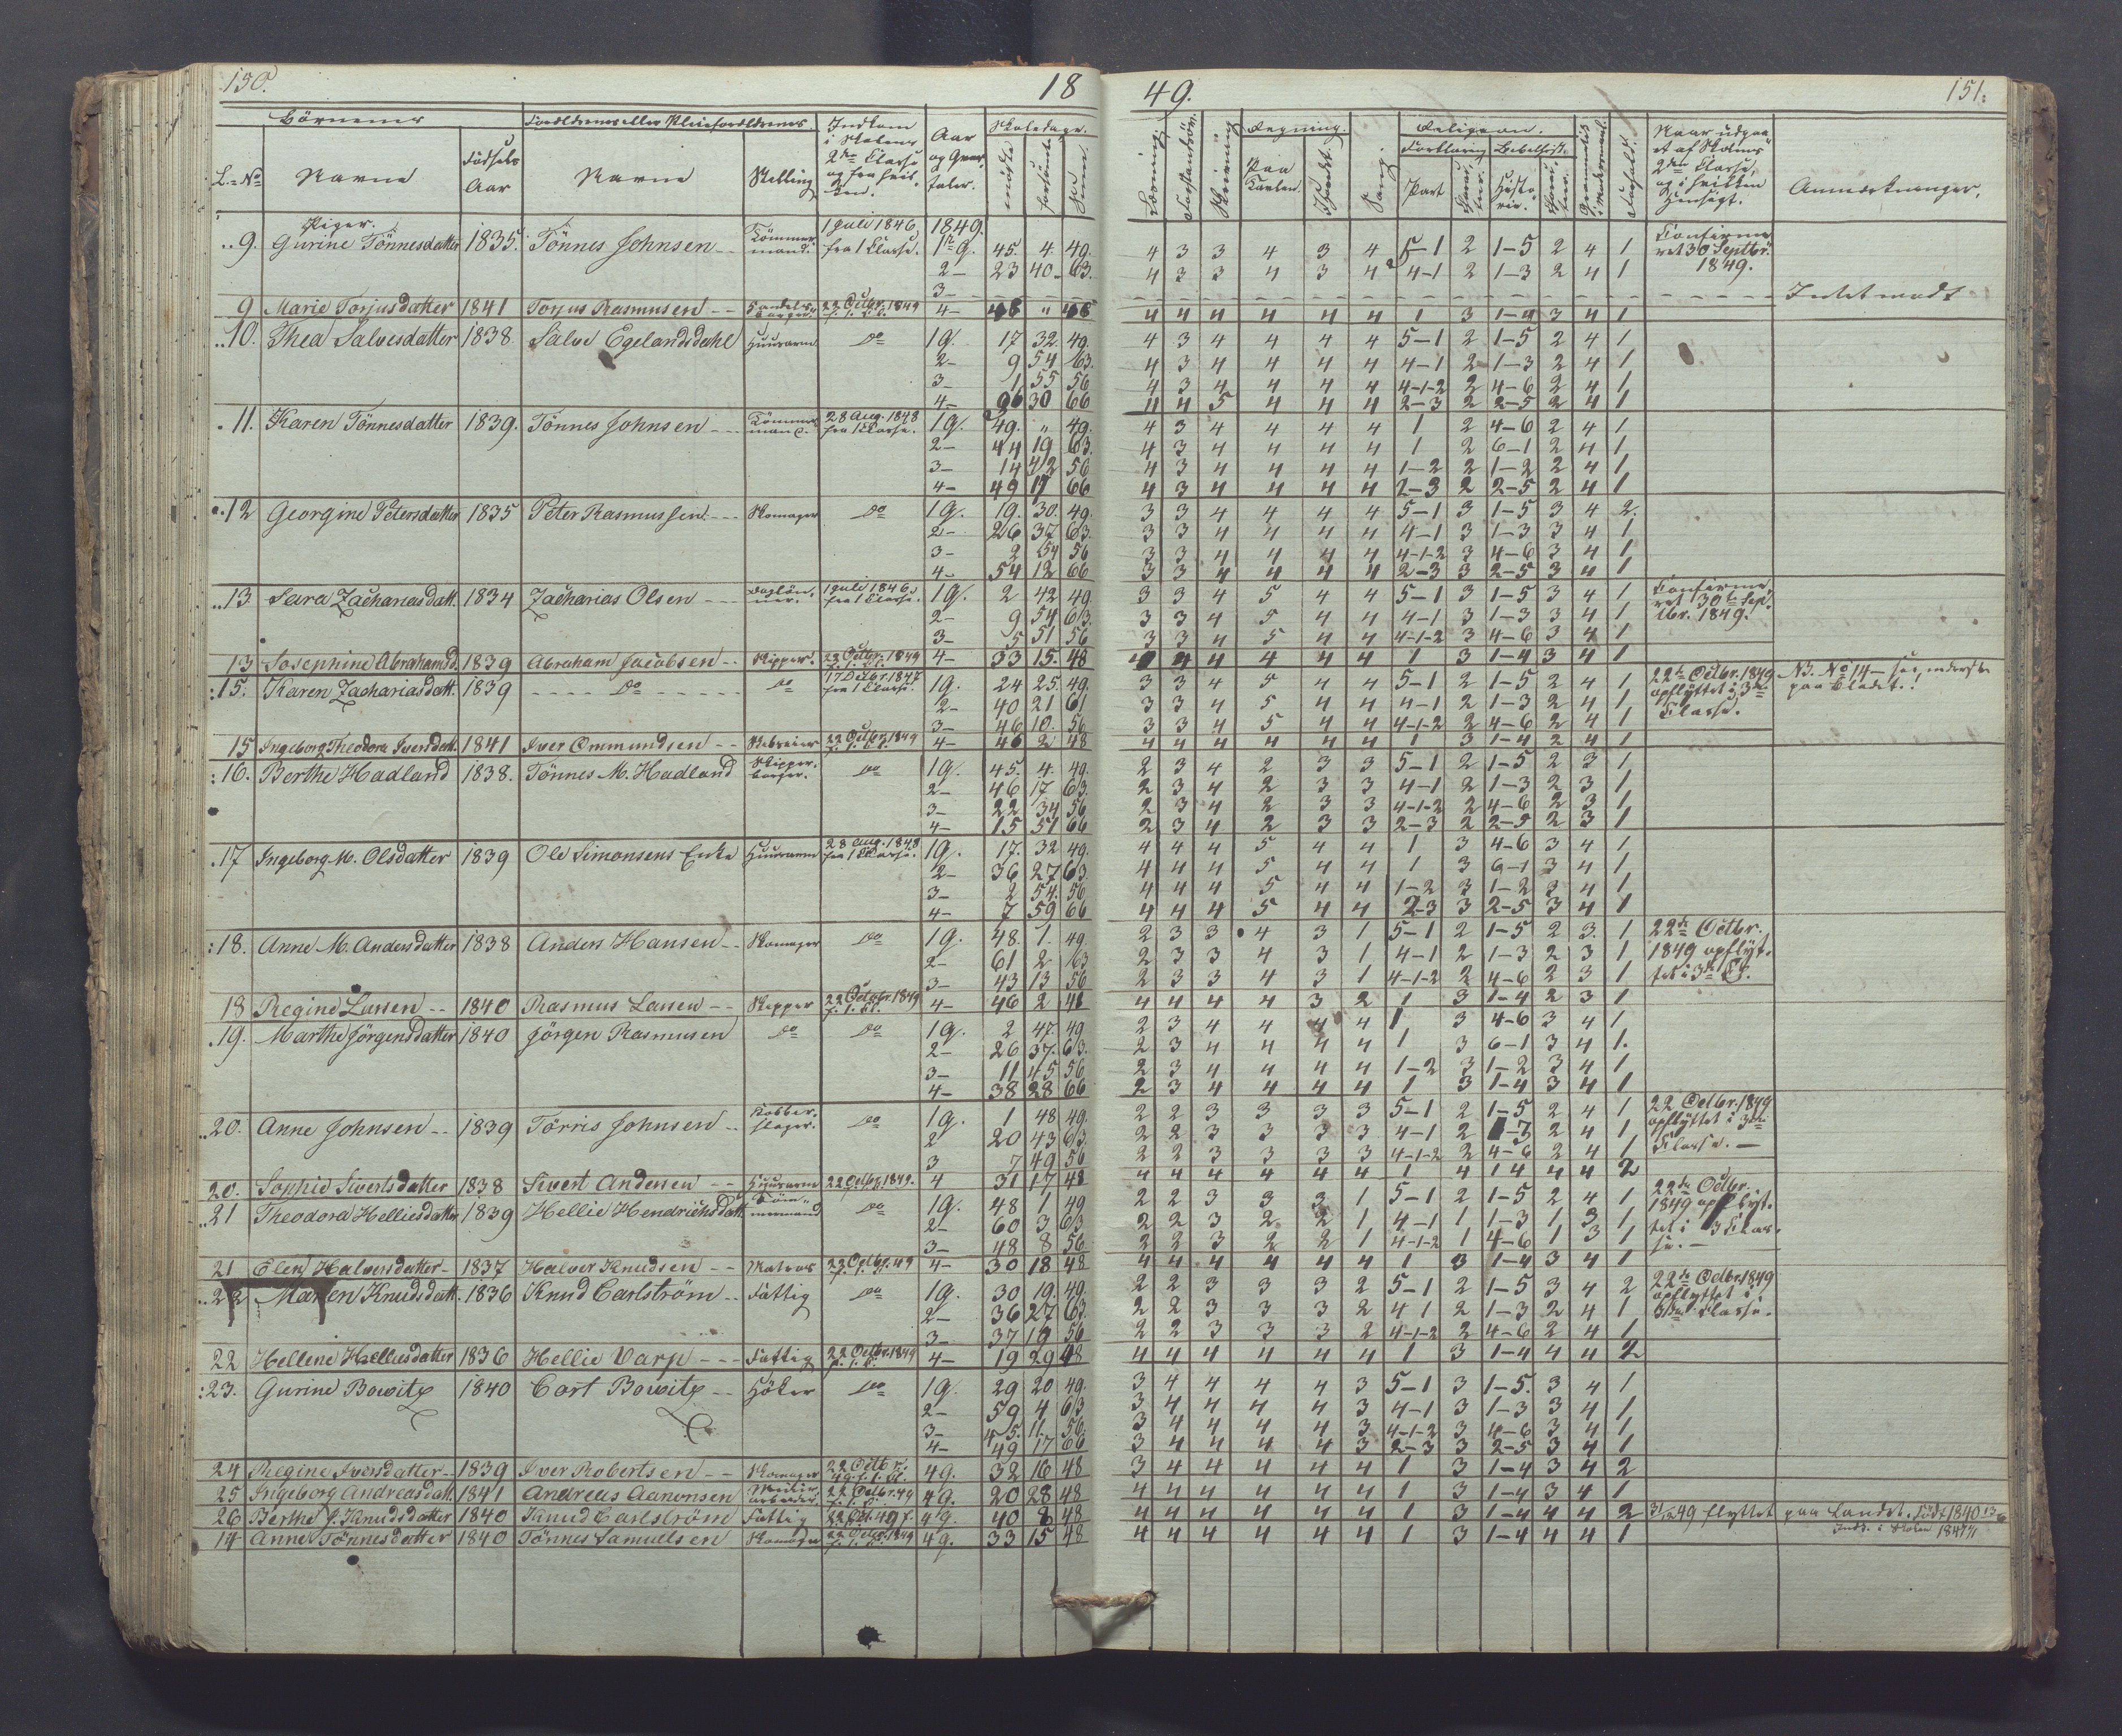 150. 18
Börnenes Forældrenes eller Pleieforældrenes Indkom i Skolens 2den Classe og fra hvilken. Aar og Qvartaler. Skoledage.
L. No Navne Födsels Aar Navne Stilling mödte forsömte Sum.
Piger. 1 Juli 1846 1849.
9. Gurine Tönnesdatter 1835. Tönnes Johnsen Tömmermand. fra 1 Classe. 1ste Q. 45. 4. 49.
2 23 40 63.
3
9 Marie Torjusdatter 1841 Torjus Rasmussen 22 Octbr. 1849 4 48 " 48
10. Thea Salvesdatter 1838 Salve Egelandsdahl Huusarm Do 1Q. 17 32. 49.
2 9 54 63.
3 1 55 56
4 36 30 66
11. Karen Tönnesdatter 1839. Tönnes Johnsen Tömmermand. 28 Aug. 1848 fra 1 Classe. 1Q. 49. " 49.
2 44 19 63.
3 14 42 56
4 49 17 66
12 Georgine Petersdatter 1835 Peter Rasmussen. Skomager Do 1Q. 19. 30. 49.
2 26 37 63.
3 2 54 56
4 54 12 66
13 Sara Zachariasdatt. 1834 Zacharias Olsen Daglönner. 1 Juli 1846 fra 1 Classe. 1Q. 2 42 49.
2 9 54 63.
3 5 51 56
13 Josephine Abrahamsd. 1839 Abraham Jacobsen Skipper. 22 Octbr. 1849 4 33 15. 48
15. Karen Zachariasdatt. 1839 Do Do 17 Octbr. 1847 fra 1 Classe. 1Q. 24 25. 49.
2 40 21 61
3 46 10. 56
15 Ingeborg Theodora Iversdatt. 1841 Iver Ommundsen 22 Octbr. 1849 4 46 2 48
16. Berthe Hadland 1838. Tönnes M. Hadland Skipper. Do 1Q. 45. 4. 49.
2 46 17 63.
3 22 34 56
4 15 51 66
17 Ingeborg M. Olsdatter 1839 Ole Simonsens Enke Huusarm 28 Aug. 1848 fra 1 Classe. 1Q. 17. 32 49.
2 36 27 63
3 2 54. 56
4 7 59 66
18. Anne M. Andersdatter 1838 Anders Hansen Skomager Do 1Q. 48. 1. 49
2 61 2 63
3 43 13 56
18 Regine Larsen 1840 Rasmus Larsen Skipper 22 Octobr. 1849 4 46 2 48
19. Marthe Jörgensdatter 1840 Jörgen Rasmussen Do Do 1Q. 2 47. 49
2 26 37. 63.
3 11 45 56
4 38 28 66
20. Anne Johnsen 1839 Törris Johnsen Kobberslager. Do 1Q. 1 48 49.
2 20 43 63
3 7 49 56
20. Sophie Sivertsdatter 1838 Sivert Andersen Huusarm 22 Octbr. 1849. 4 31 17 48
21 Theodora Helliesdatter 1839 Hellie Hendrichsdatt. Tömmermand Do 1Q. 48 1 49
2 60 3 63
3 48 8 56
21 Elen Halversdatter 1837 Halver Knudsen Matros 22 Octbr. 49 4 30 18 48
22 Maren Knudsdatt. 1836 Knud Carlström Fattig Do 1Q. 30 19. 49.
2 36 27 63
3 37 19 56
22 Hellene Helliesdatter 1836 Hellie Varp Fattig 22 Octbr. 1849 4 19 29 48
23. Gurine Bowitz 1840 Cart Bowitz Höker Do 1Q. 29 20 49.
2 59 4 63
3 45. 11. 56
4 49 17 66
24 Regine Iversdatter 1839 Iver Robertsen Skomager 22 Octbr. 49 f. 1. Cl. 4Q. 32 16 48
25 Ingeborg Andreasdatt. 1841 Andreas Aanonsen 22 Octbr. 49 4Q. 20 28 48
26 Berthe J. Knudsdatter 1840 Knud Carlström Fattig 22 Oct. 49 4Q. 40 8 48
14 Anne Tönnesdatter 1840 Tönnes Samuelsen Skomager 22 Octbr. 1849 4Q. 33 15 48
49. 151.
Læsning. Forstandsöv. Skrivning Regning. Sang. Religion. Naar udgaaet af Skolens 2den Classe, og i hvilken Hensigt. Anmærkninger.
Paa Tavlen. Forklaring Bibelhist.
Part Historie.
4 3 3 4 3 4 5-1 2 1-5 2 4 1 Confirmeret 30 Septbr. 1849.
4 3 3 4 3 4 4-1 2 1-3 2 4 1
Intet mödt
4 4 4 4 4 4 1 3 1-4 3 4 1
4 3 4 4 4 4 5-1 2 1-5 2 4 1
4 3 4 4 4 4 4-1 2 1-3 2 4 1
4 3 4 4 4 4 4-1-2 2 4-6 2 4 1
4 4 5 4 4 4 2-3 2 2-5 2 4 1
4 3 4 4 4 4 1 2 4-6 2 4 1
4 3 4 4 4 4 1 2 6-1 2 4 1
4 3 4 4 4 4 1-2 2 1-2 2 4 1
4 3 4 4 4 4 2-3 2 2-5 2 4 1
3 3 4 4 4 4 5-1 3 1-5 3 4 2.
3 3 4 4 4 4 4-1 3 1-3 3 4 1
3 3 4 4 4 4 4-1-2 3 4-6 3 4 1
3 3 4 4 4 4 2-3 3 2-5 3 4 1
3 3 4 5 4 4 5-1 3 1-5 3 4 1 Confirmeret 30te Septbr. 1849.
3 3 4 5 4 4 4-1 3 1-3 3 4 1
3 3 4 5 4 4 4-1-2 3 4-6 3 4 1
4 4 4 4 4 4 1 3 1-4 3 4 1
3 3 4 5 4 4 5-1 2 1-5 2 4 1 22de Octbr. 1849 opflyttet i 3die Classe. NB. No 14 see nederste paa Bladet.
3 3 4 5 4 4 4-1 2 1-3 2 4 1
3 3 4 5 4 4 4-1-2 2 4-6 2 4 1
4 4 4 4 4 4 1 3 1-4 2 4 1
2 3 4 2 3 3 5-1 2 1-5 2 3 1
2 3 4 2 3 3 4-1 2 1-3 2 3 1
2 3 4 2 3 3 4-1-2 2 4-6 2 3 1
2 3 4 2 3 3 2-3 2 2-5 2 3 1
4 4 4 5 4 4 1 3 4-6 3 4 1
4 4 4 5 4 4 1 3 6-1 3 4 1
4 4 4 5 4 4 1-2 3 1-2 3 4 1
4 4 4 5 4 4 2-3 3 2-5 3 4 1
2 3 3 4 3 1 5-1 2 1-5 2 3. 1 22de Octbr. 1849 opflyttet i 3die Cl.
2 3 3 4 3 1 4-1 2 1-3 2 3 1
2 3 3 4 3 1 4-1-2 2 4-6 2 3 1
4 4 4 4 3 2 1 3 1-4 2 3 1
2 3 4 4 4 4 1 3 4-6 3 4 1
2 3 4 4 4 4 1 3 6-1 3 4 1.
2 3 4 4 4 4 1-2 3 1-2 3 4 1
2 3 4 4 4 4 1 3 1-4 3 4 1
2 2 3 3 3 3 5-1 2 1-5 2 4 1 22 Octbr. 1849 opflyttet i 3die Classe.
2 2 3 3 3 3 4-1 2 1-3 2 4 1
2 2 3 3 3 3 4-1-2 2 4-6 2 4 1
4 4 4 4 4 4 1 4 1 4 4 4 2
2 2 3 3 3 1 5-1 2 1-5 2 4 1 22de Octbr. 1849 opflyttet i 3 Classe.
2 2 3 2 2 1 4-1 1 1-3 1 3 1
2 2 3 2 2 1 4-1-2 1 4-6 1 3 1
4 4 4 4 4 4 1 3 1-4 3 4 1
2 2 3 3 3 2 5-1 2 1-5 3 4 2 22de Octbr. 1849 opflyttet i 3die Classe.
2 2 3 3 3 2 4 1 2 1-3 2 4 1
2 2 3 3 3 2 4-1-2 2 4-6 2 4 1
4 4 4 4 4 4 1 3 1-4 4 4 2
3 4 4 4 4 3 5-1 3 1-5. 3 4 1
3 4 4 4 4 3 4-1 3 1-3 3 4 1
3 4 4 4 4 3 4-1-2 3 4-6 3 4 1
3 4 4 4 4 3 2-3 3 2-5 3 4 1
3 4 4 4 4 4 1 3 1-4 3 4 2
4 4 4 4 4 4 1 3 1-4 3 4 1
4 4 4 4 4 4 1 3 1-4 4 4 2 49 flyttet paa Landet. Födt 1840
4 4 4 4 4 4 1 3 1-4 4 4 1 Indk. i Skolen 1847